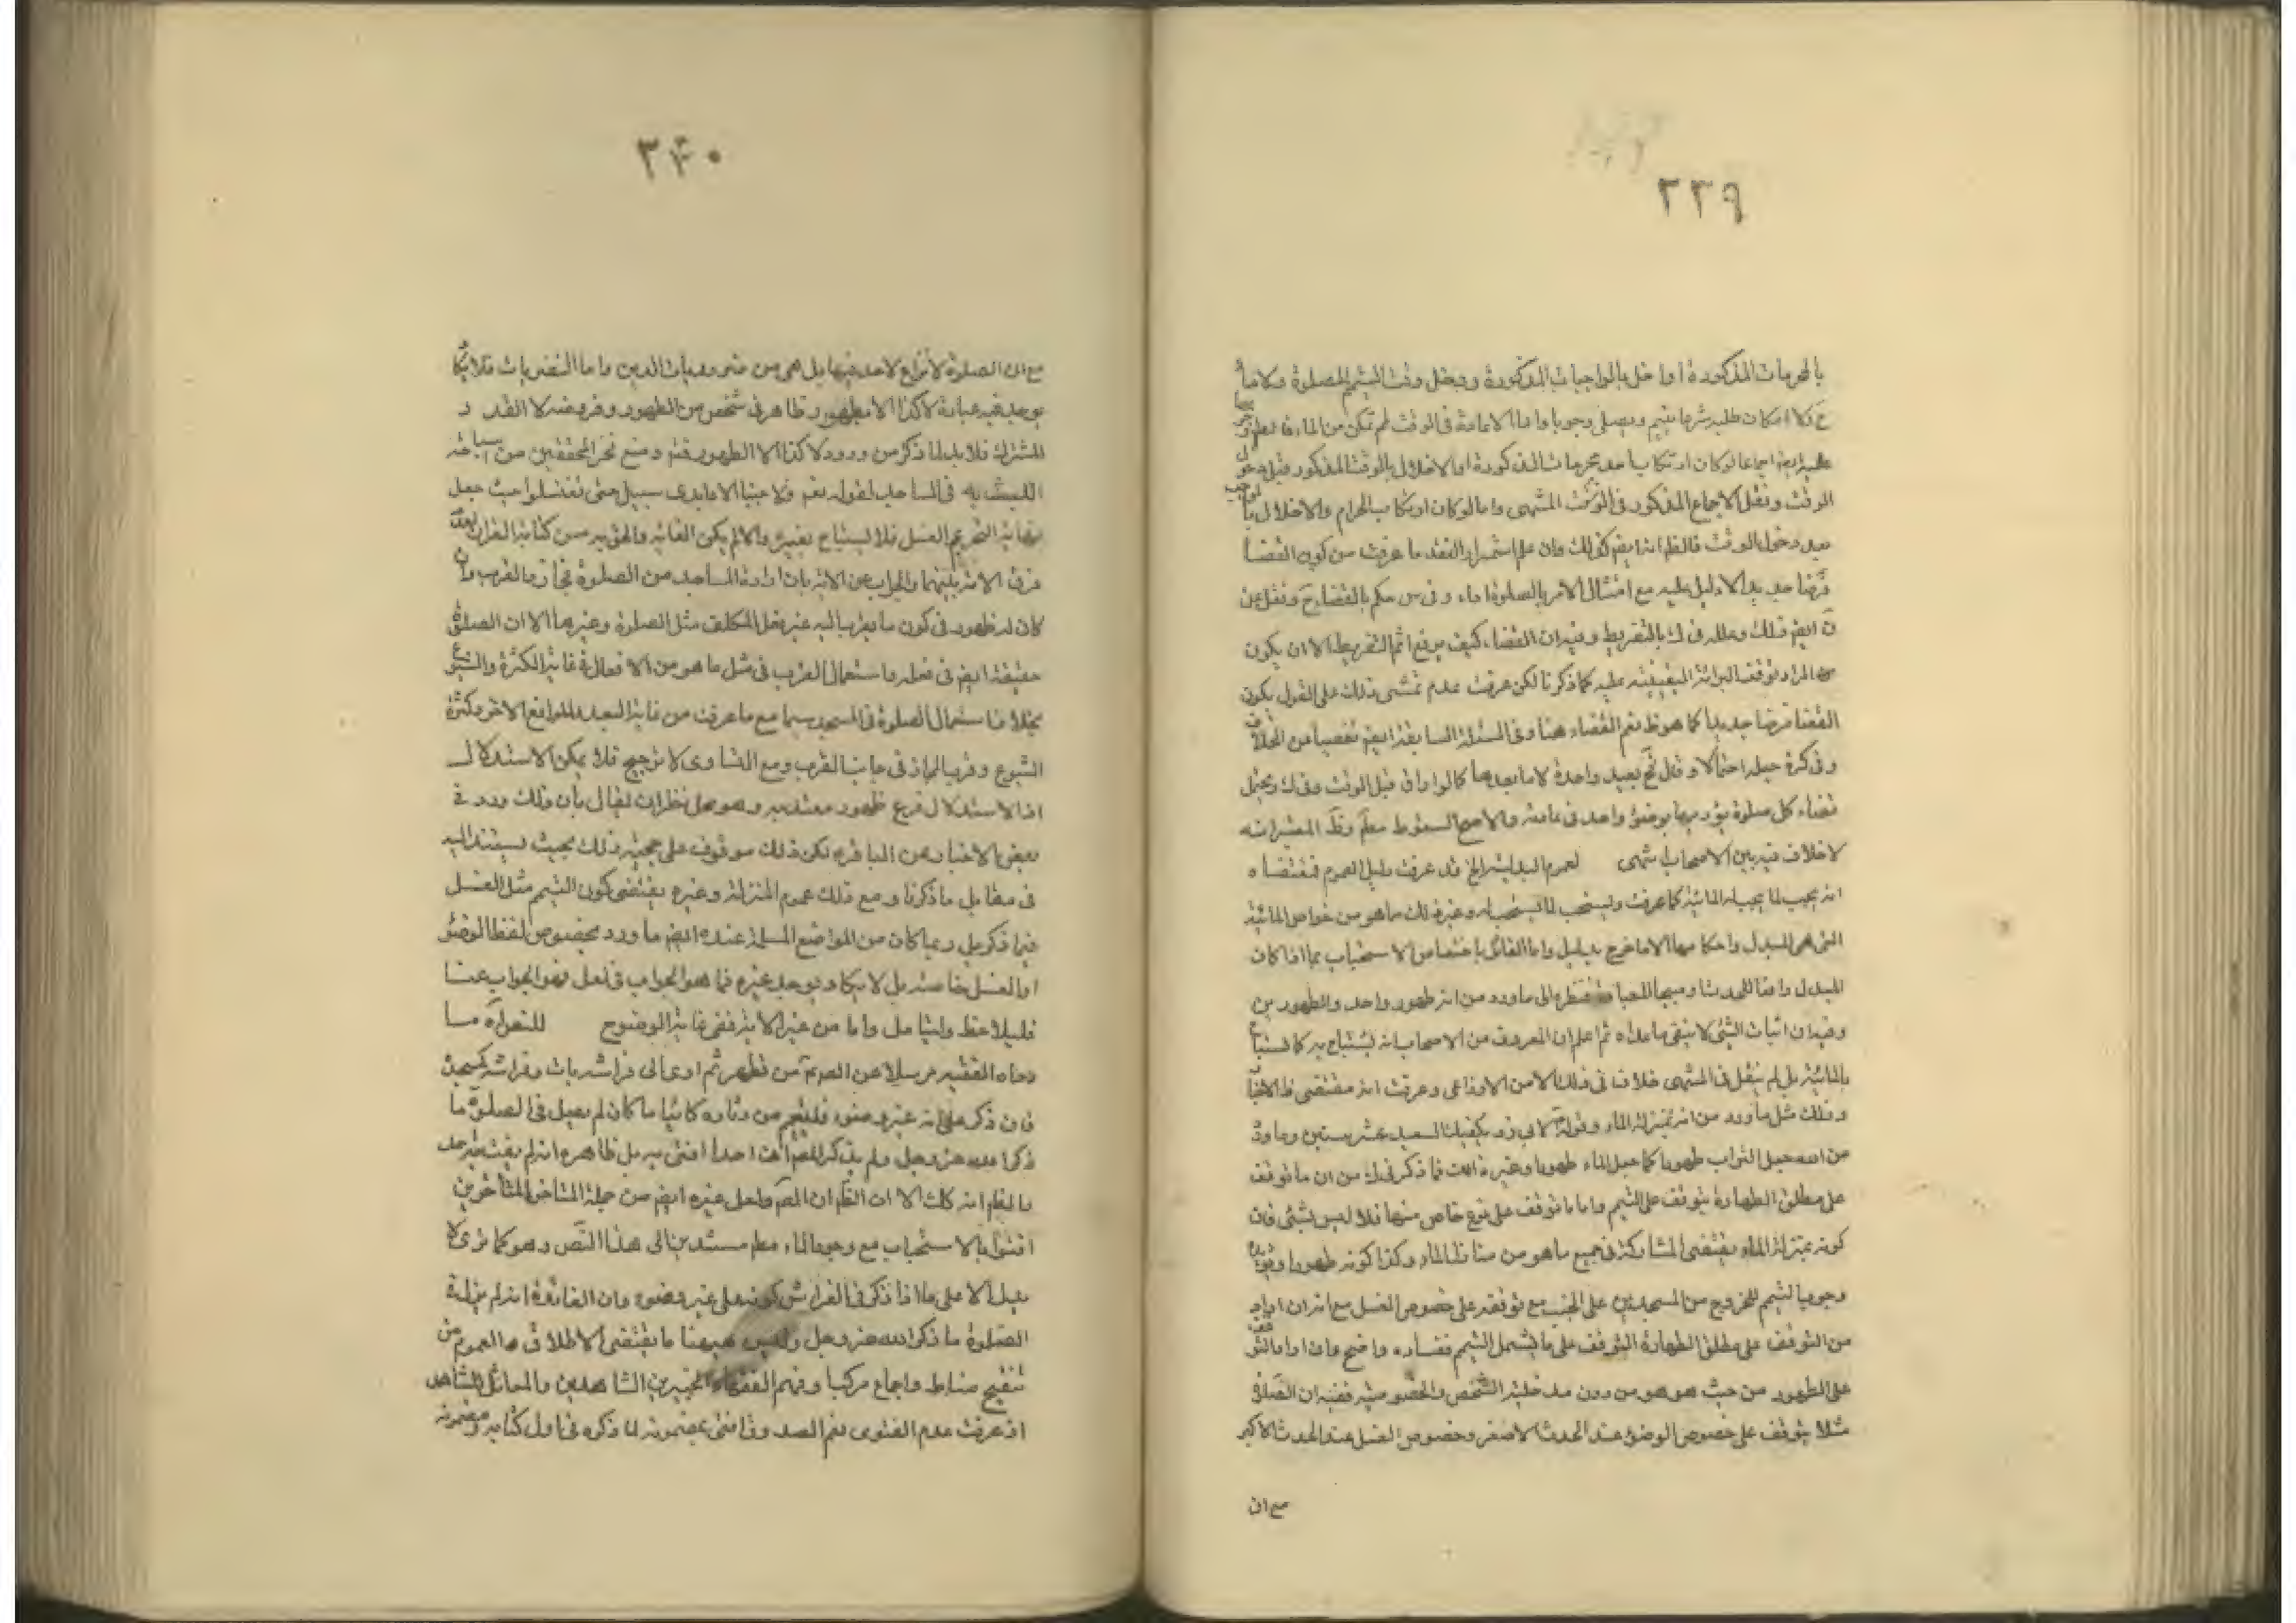 ٢٣٩
بالمحرمات المذكورة او اخل بالواجبات المذكورة ودخل وقت التيمم للصلوة
فلا امكان طلبه شرعا يتيمم ويصلى وجوبا واما الاعادة فى الوقت لم تمكن من الماء
اجماعا لو كان ارتكاب احد محرمات المذكورة او الاخلال بالوقت المذكور قبل دخول
الوقت ونقل الاجماع المذكور فى الوقت المنتهى واما لو كان ارتكاب الحرام والاخلال
بعد دخول الوقت فالظ انه ايضم كذلك وان علم استمرار الفقد ما عرفت من كون القضا
فرضا جديدا لا دليل عليه مع امتثال الامر بالصلوة اداء وفى س حكم بالقضاء ح ونقل عن
ايضم ذلك وعلله فى ك بالتفريط وفيه ان القضاء كيف يرفع اثم التفريط الا ان يكون
المراد توقف البرائة اليقينية عليه كما ذكرنا لكن عرفت عدم تمشى ذلك على القول بكون
القضا فرضا جديدا كما هو ظ نعم القضاء هنا وفى المسئلة السابقة ايضم تفصيا عن الخلاف
وفى كرة جعله احتمالا وقال ح يعيد واحدة لا ما بعدها كما لو اراق قبل الوقت وفى ك ويحتمل
قضاء كل صلوة يؤديها بوضوء واحد فى عادته والاصح السقوط مطم وظ المعتبر انه
لا خلاف فيه بين الاصحاب انتهى لعموم البدلية الخ قد عرفت دليل العموم فمقتضاه
انه يجب لما يجب له المائية كما عرفت ويستحب لما يستحب له وغير ذلك ما هو من خواص المائية
التى هى المبدل واحكامها الا ما خرج بدليل واما القائل باختصاص الاستحباب بما اذا كان
المبدل رافعا للحدث او مبيحا للعبادة فنظره الى ما ورد من انه طهور واحد والطهورين
وفيه ان اثبات الشئ لا ينفى ما عداه ثم اعلم ان المعروف من الاصحاب انه يستباح به كما يستباح
بالمائية بل لم ينقل فى المنتهى خلافا فى ذلك الا من الاوزاعى وعرفت انه مقتضى ظ الاخبار
وذلك مثل ما ورد من انه بمنزلة الماء وقوله لابى ذر يكفيك الصعيد عشر سنين وما ورد
من الله جعل التراب طهورا كما جعل الماء طهورا وغير ذلك فما ذكر فى ك من ان ما توقف
على مطلق الطهارة يتوقف على التيمم واما ما توقف على نوع خاص منها فلا ليس بشئ فان
كونه بمنزلة الماء يقتضى المشاركة فى جميع ما هو من منازل الماء وكذا كونه طهورا
وجوب التيمم للخروج من المسجدين على الجنب مع توقفه على خصوص الغسل مع انه ان اراد
من التوقف على مطلق الطهارة التوقف على ما يشمل التيمم ففساده واضح وان اراد التوقف
على الطهور من حيث هو هو من دون مدخلية الشخص والخصوصية ففيه ان الصلوة
مثلا يتوقف على خصوص الوضوء عند الحدث الاصغر وخصوص الغسل عند الحدث الاكبر
مع ان
٢٤٠
مع ان الصلوة لا نزاع لاحد فيها بل هى من ضروريات الدين واما النظريات فلا يكاد
يوجد فيه عبادة لا كذا الا بطهور وظاهر فى شخص من الطهور وفروضه لا القدر
المشترك فلا بد لما ذكر من ورود لا كذا الا الطهور فتم ومنع فخر المحققين من اباحته
اللبث به فى المساجد لقوله تعم ولا جنبا الا عابرى سبيل حتى تغتسلوا حيث جعل
نهاية التحريم الغسل فلا يستباح بغيره والا لم يكن الغاية والحق به مس كتابة القران لعدم
فرق الامة بينهما والجواب عن الاية بان ارادة المساجد من الصلوة مجاز والقرب وان
كان له ظهور فى كون ما يقرب اليه غير فعل المكلف مثل الصلوة وغيرها الا ان الصلوة
حقيقة ايضم فى فعله واستعمال القرب فى مثل ما هو من الافعال فى غاية الكثرة والشيوع
بخلاف استعمال الصلوة فى المسجد سيما مع ما عرفت من غاية البعد للمواقع الاخر وكثرة
الشيوع وقرب المجاز فى جانب القرب ومع التساوى لا ترجيح فلا يمكن الاستدلال
اذ الاستدلال فرع ظهور معتد به وهو محل نظر ان يقال بان ذلك ورد فى
بعض الاخبار عن الباقر لكن ذلك موقوف على حجية ذلك بحيث يستند اليه
فى مقابل ما ذكرنا ومع ذلك عموم المنزلة وغيره يقتضى كون التيمم مثل الغسل
فيما ذكر بل ربما كان من المواضع المسلمة عنده ايضم ما ورد بخصوص لفظ الوضوء
او الغسل خاصة بل لا يكاد يوجد غيره فما هو الجواب فى لعل فهو الجواب عنا
فليلاحظ وليتامل واما من غير الاية ففى غاية الوضوح للنص رواه مـا
رواه الفقيه مرسلا عن الصم من تطهر ثم اوى الى فراشه بات وفراشه كمسجده
فان ذكر على انه غير وضوء فليتيمم من دثاره كائنا ما كان لم يعيل فى الصلوة ما
ذكر الله عز وجل ولم يذكر احدا افتى به بل ظاهره انه لم يفت به احد
بالظم انه كلك الا ان الظم ان المص ولعل غيره ايضم من جملة المتاخرين
افتوا بالاستحباب مع وجود الماء مطم مستندين الى هذا النص وهو كما ترى لا
يدل الا على ما اذا ذكر فى الفراش كونه على غير وضوء وان الفائدة انه لم يزل فى
الصلوة ما ذكر الله عز وجل وليس هيهنا ما يقتضى الاطلاق والعموم من
تنقيح مناط واجماع مركب وفهم الفقهاء الخبيرين الشاهدين
اذ عرفت عدم الفتوى نعم الصدوق افتى بمضمونه لما ذكره فى اول كتابه ومضمونه